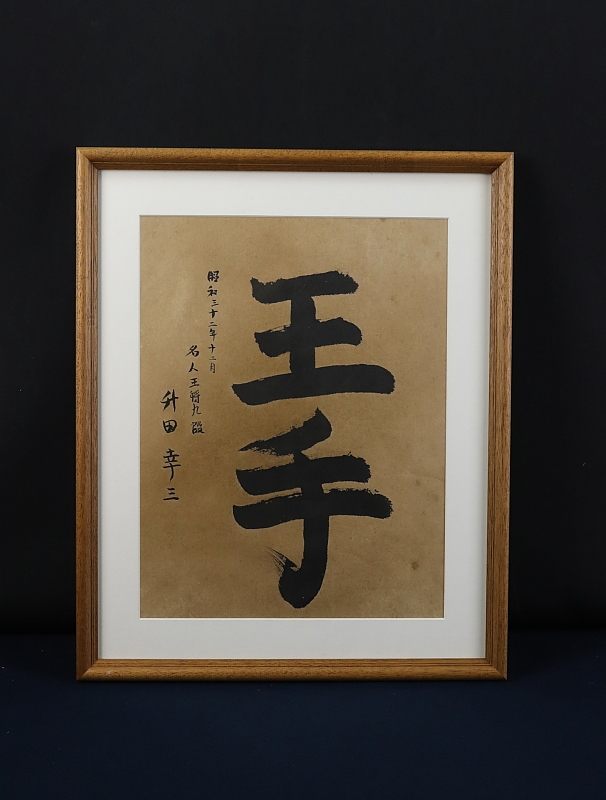 王手
昭和三十二年十二月
名人王将九段
升田幸三